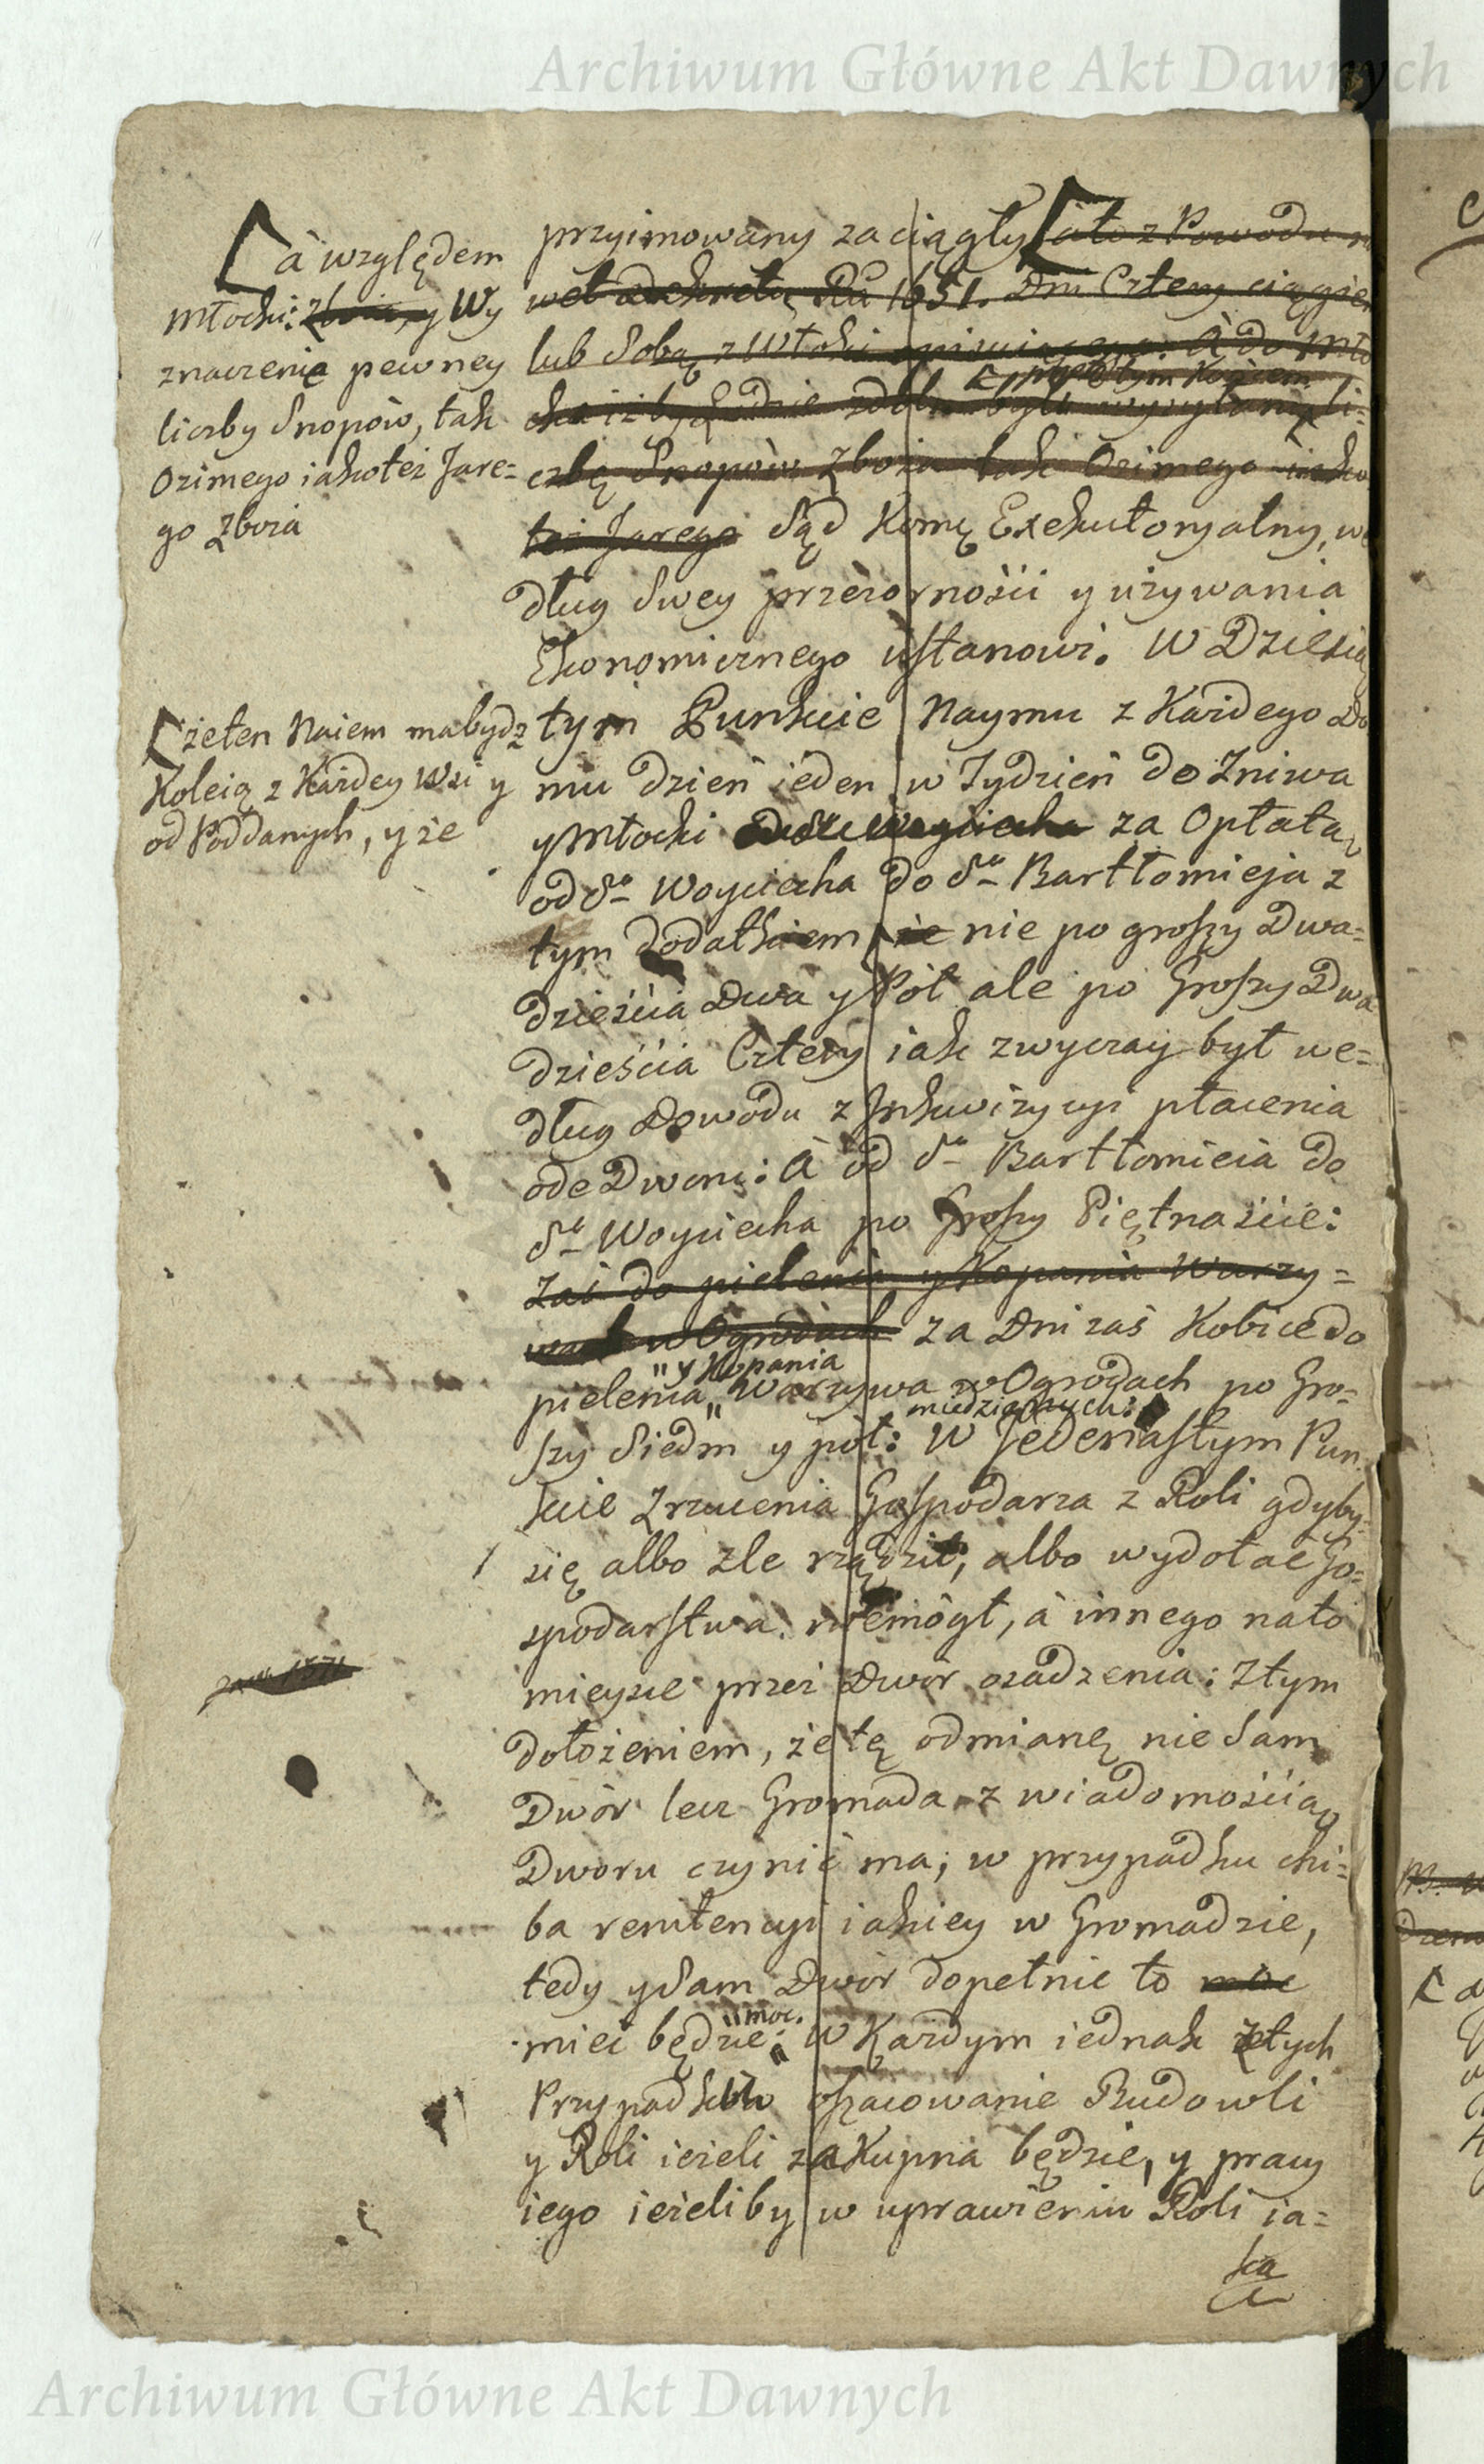 Archiwum Główne Akt Dawnych
à względem
Młocki: zboża, y Wy
znaczenie pewney
liczby Snopów, tak
Ozimego iakoteż Jare=
go zboża
żeten Naiem mabydz
Koleią z Każdey Wsi y
od Poddanych, y że
przyimowany zaciągły ato z Powodu
1651. Dni Cztery
lub Sobą z Włoki A do Mło
byli
czbę Snopów Zboża tak Ozimego iako
też Jarego Sąd Komį Exekutoryalny, we
dług Swey przezornośći y używania
Ekonomicznego ustanowi. W Dziesią
tym Punkcie Naymu z Każdego Do
mu dzień ieden w Tydzień do Zniwa
yMłocki za Opłatą
od Sº Woyciecha do Sº Bartłomieja z
tym dodatkiem, że nie po groszy Dwa=
dzieśćia Dwa y Pół ale po Groszy Dwa
dzieśćia Cztery iak zwyczay był we=
dług Dowodu z Jnkwizycyi płacenia
ode Dworu: A od Sº Bartłomieia do
Sº Woyciecha po Groszy Piętnaśćie:
Zaś do pielenia y Kopania Warzy=
wa w Ogrodach za Dni zaś Kobiece do
" y Kopania
pielenia " Warzywa w Ogrodach po Gro=
miedzianych:
szy Siedm y pół: W Jedenastym Pun
kcie Zrzucenia Gospodarza z Roli gdyby
się albo zle rządził, albo wydołać Go=
spodarstwa niemógł, à innego nato
mieysce przez Dwór osadzenia: Ztym
dołożeniem, że tę odmianę nie Sam
Dwór lecz Gromada z wiadomośćią
Dworu czynić ma; w przypadku chi=
ba renitencyi iakiey w Gromadzie,
tedy ySam Dwór dopełnić to moc
" moc.
mieć będzie: W Każdym iednak ztych
Przypadków oszacowanie Budowli
y Roli ieżeli zakupna będzie, y pracy
iego ieżeliby w uprawieniu Roli ia=
ka
Archiwum Główne Akt Dawnych